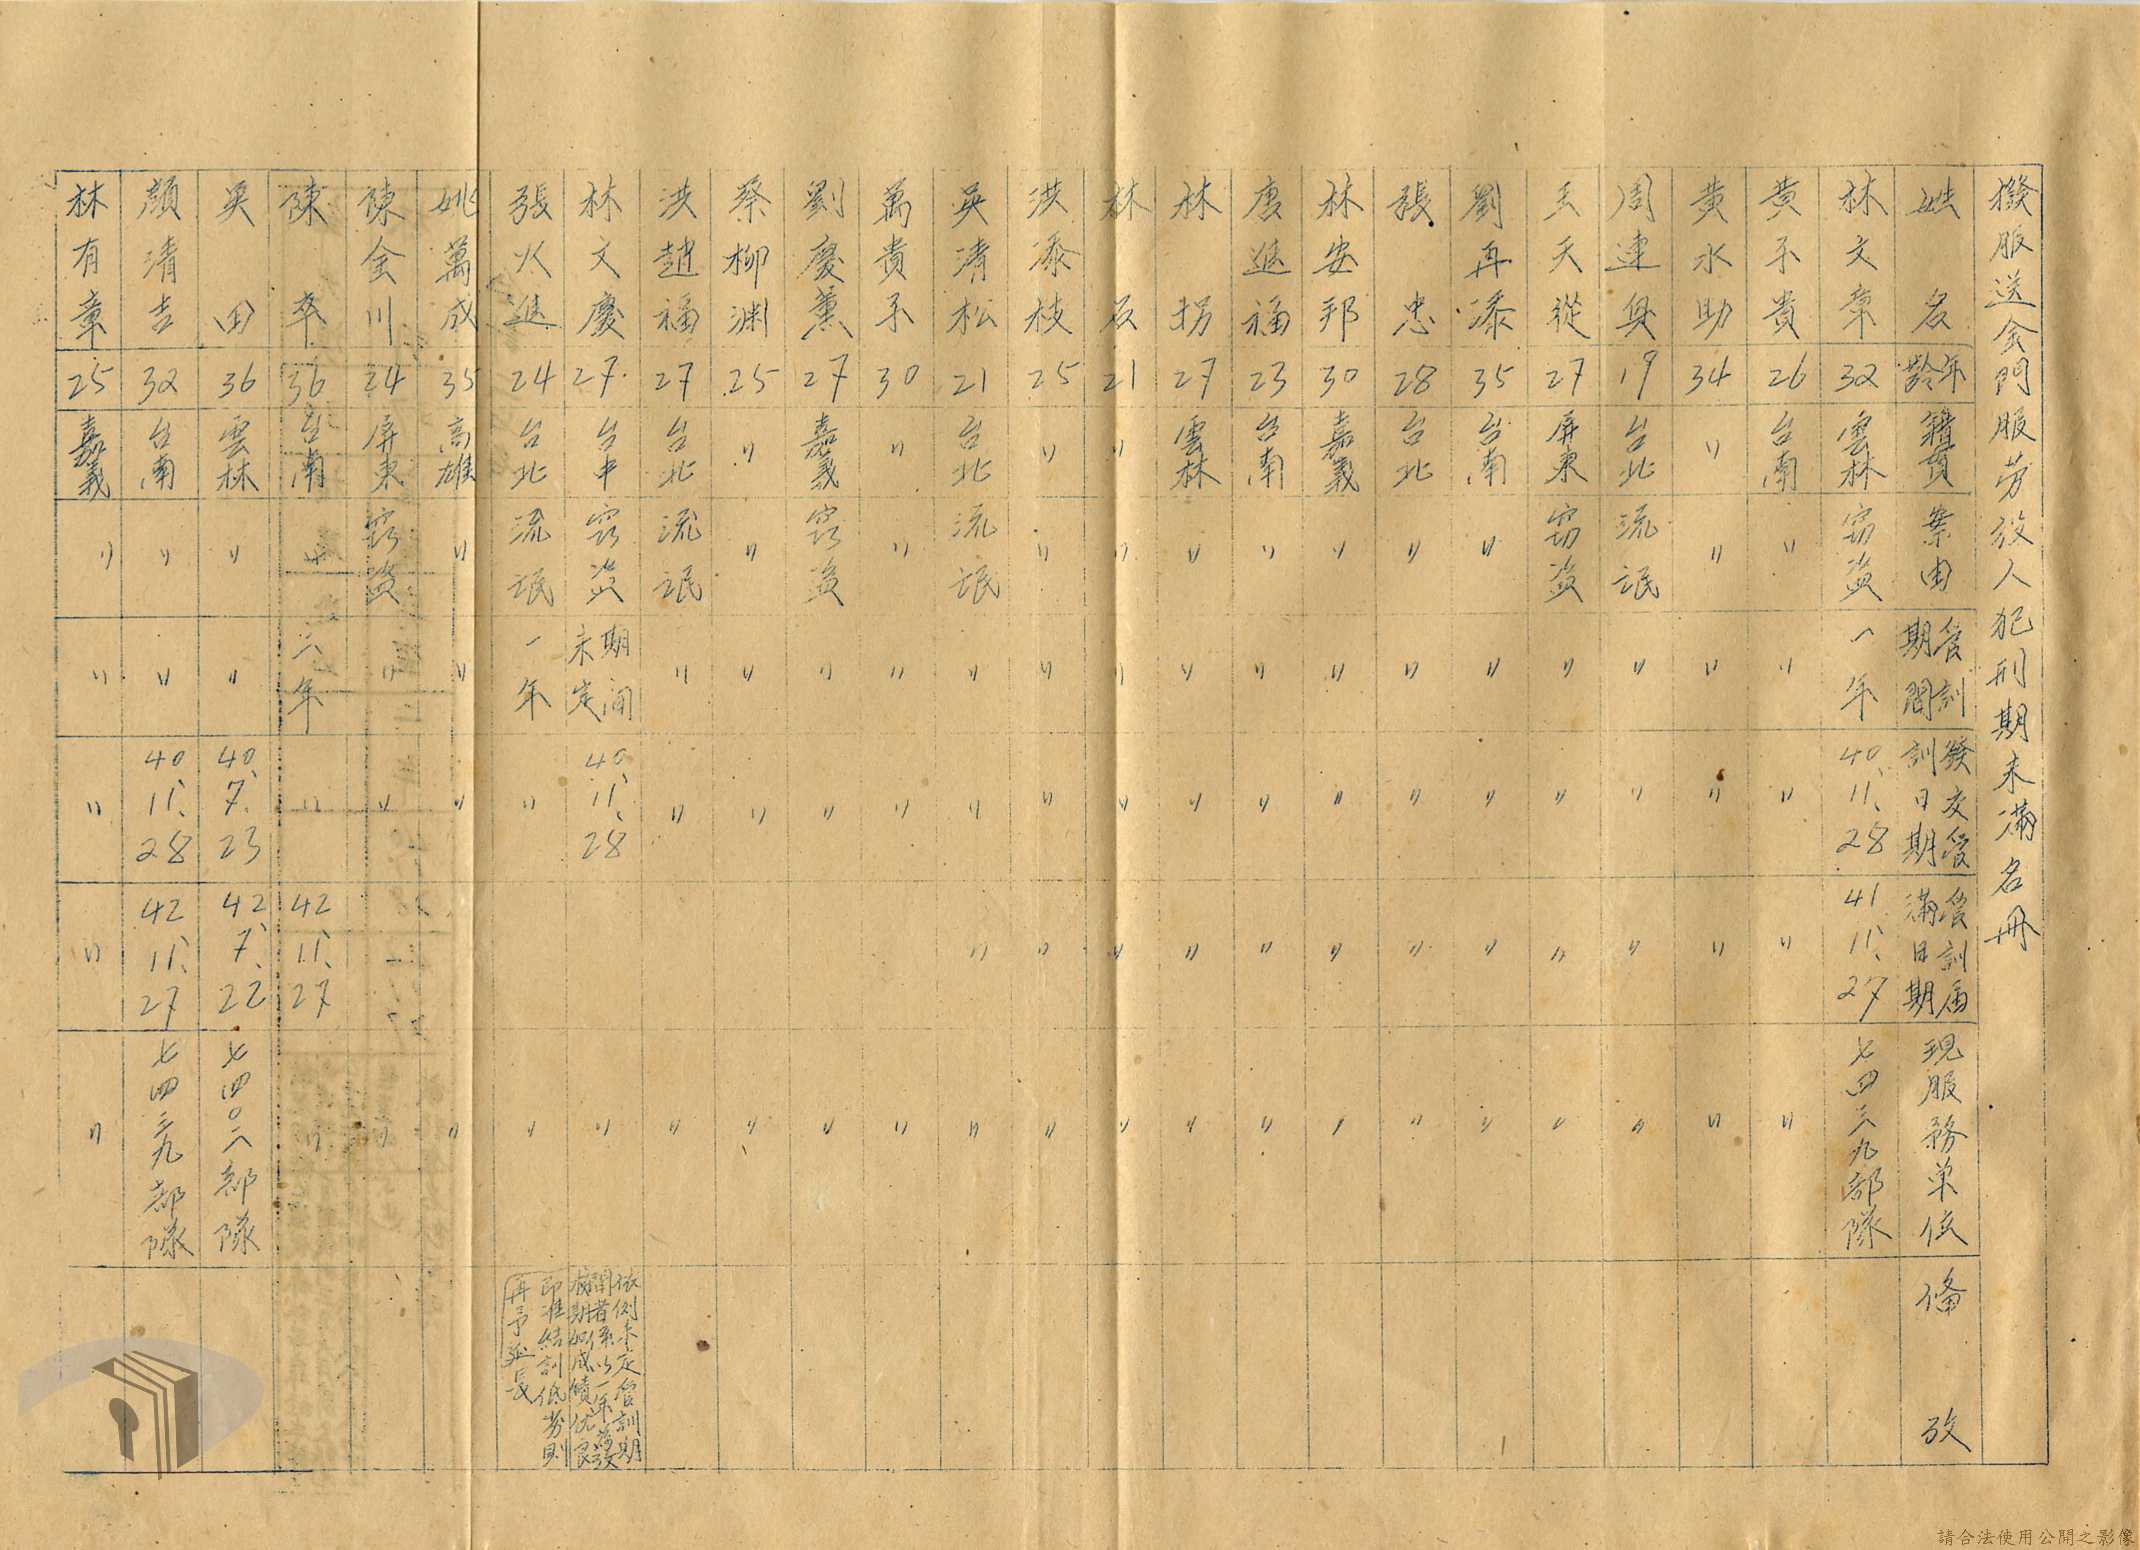 撥服送金門服勞役人犯刑期未滿名冊
姓名 年齡 籍貫 案由 管訓期間 發交管訓日期 管訓屆滿日期 現服務單位 備攷
林文章 32 雲林 竊盜 一年 40、11、28 41、11、27 七四三九部隊
黃不貴 26 台南 〃 〃 〃 〃 〃
黃水助 34 〃 〃 〃 〃 〃 〃
周連興 19 台北 流氓 〃 〃 〃 〃
王天從 27 屏東 竊盜 〃 〃 〃 〃
劉再添 35 台南 〃 〃 〃 〃 〃
張忠 28 台北 〃 〃 〃 〃 〃
林安邦 30 嘉義 〃 〃 〃 〃 〃
唐進福 23 台南 〃 〃 〃 〃 〃
林拐 27 雲林 〃 〃 〃 〃 〃
林 21 〃 〃 〃 〃 〃 〃
洪添枝 25 〃 〃 〃 〃 〃 〃
吳清松 21 台北 流氓 〃 〃 〃 〃
萬貴不 30 〃 〃 〃 〃 〃
劉慶薰 27 嘉義 竊盜 〃 〃 〃
蔡柳渊 25 〃 〃 〃 〃 〃
洪趙福 27 台北 流氓 〃 〃 〃
林文慶 27 台中 竊盜 期間未定 40、11、28 〃 依例未定管訓期間者係以一年為發城期如成績优良即准結訓低劣則再予延長
張火進 24 台北 流氓 一年 〃 〃
姚萬成 35 高雄 〃 〃 〃 〃
陳金川 24 屏東 竊盜 〃 〃 〃
陳卒 36 台南 〃 二年 〃 42、11、27 〃
吳田 36 雲林 〃 〃 40、7、23 42、7、22 七四〇二部隊
顏清吉 32 台南 〃 〃 40、11、28 42、11、27 七四三九部隊
林有章 25 嘉義 〃 〃 〃 〃 〃
請合法使用公開之影像